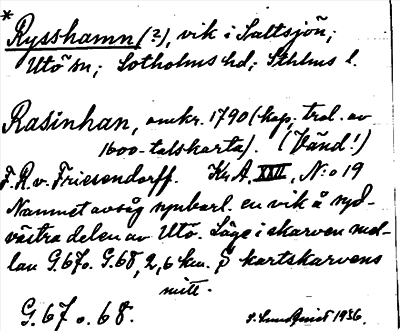 *
Rysshamn (?), vik i Saltsjön;
Utö sn; Sotholms hd; Sthlms l.
Rasinhan, omkr. 1790 (kop, trol. av
1600-talskarta). (Vänd!)
F. R. v. Friesendorff. Kr. A. XVII, N:o 19
Namnet avsåg synbarl. en vik å syd-
västra delen av Utö. Läge i skarven mel-
lan G.67 o. G.68, 2,6 km. kartskarvens
mitt.
G. 67 o. 68. S. Lundqvist 1936.